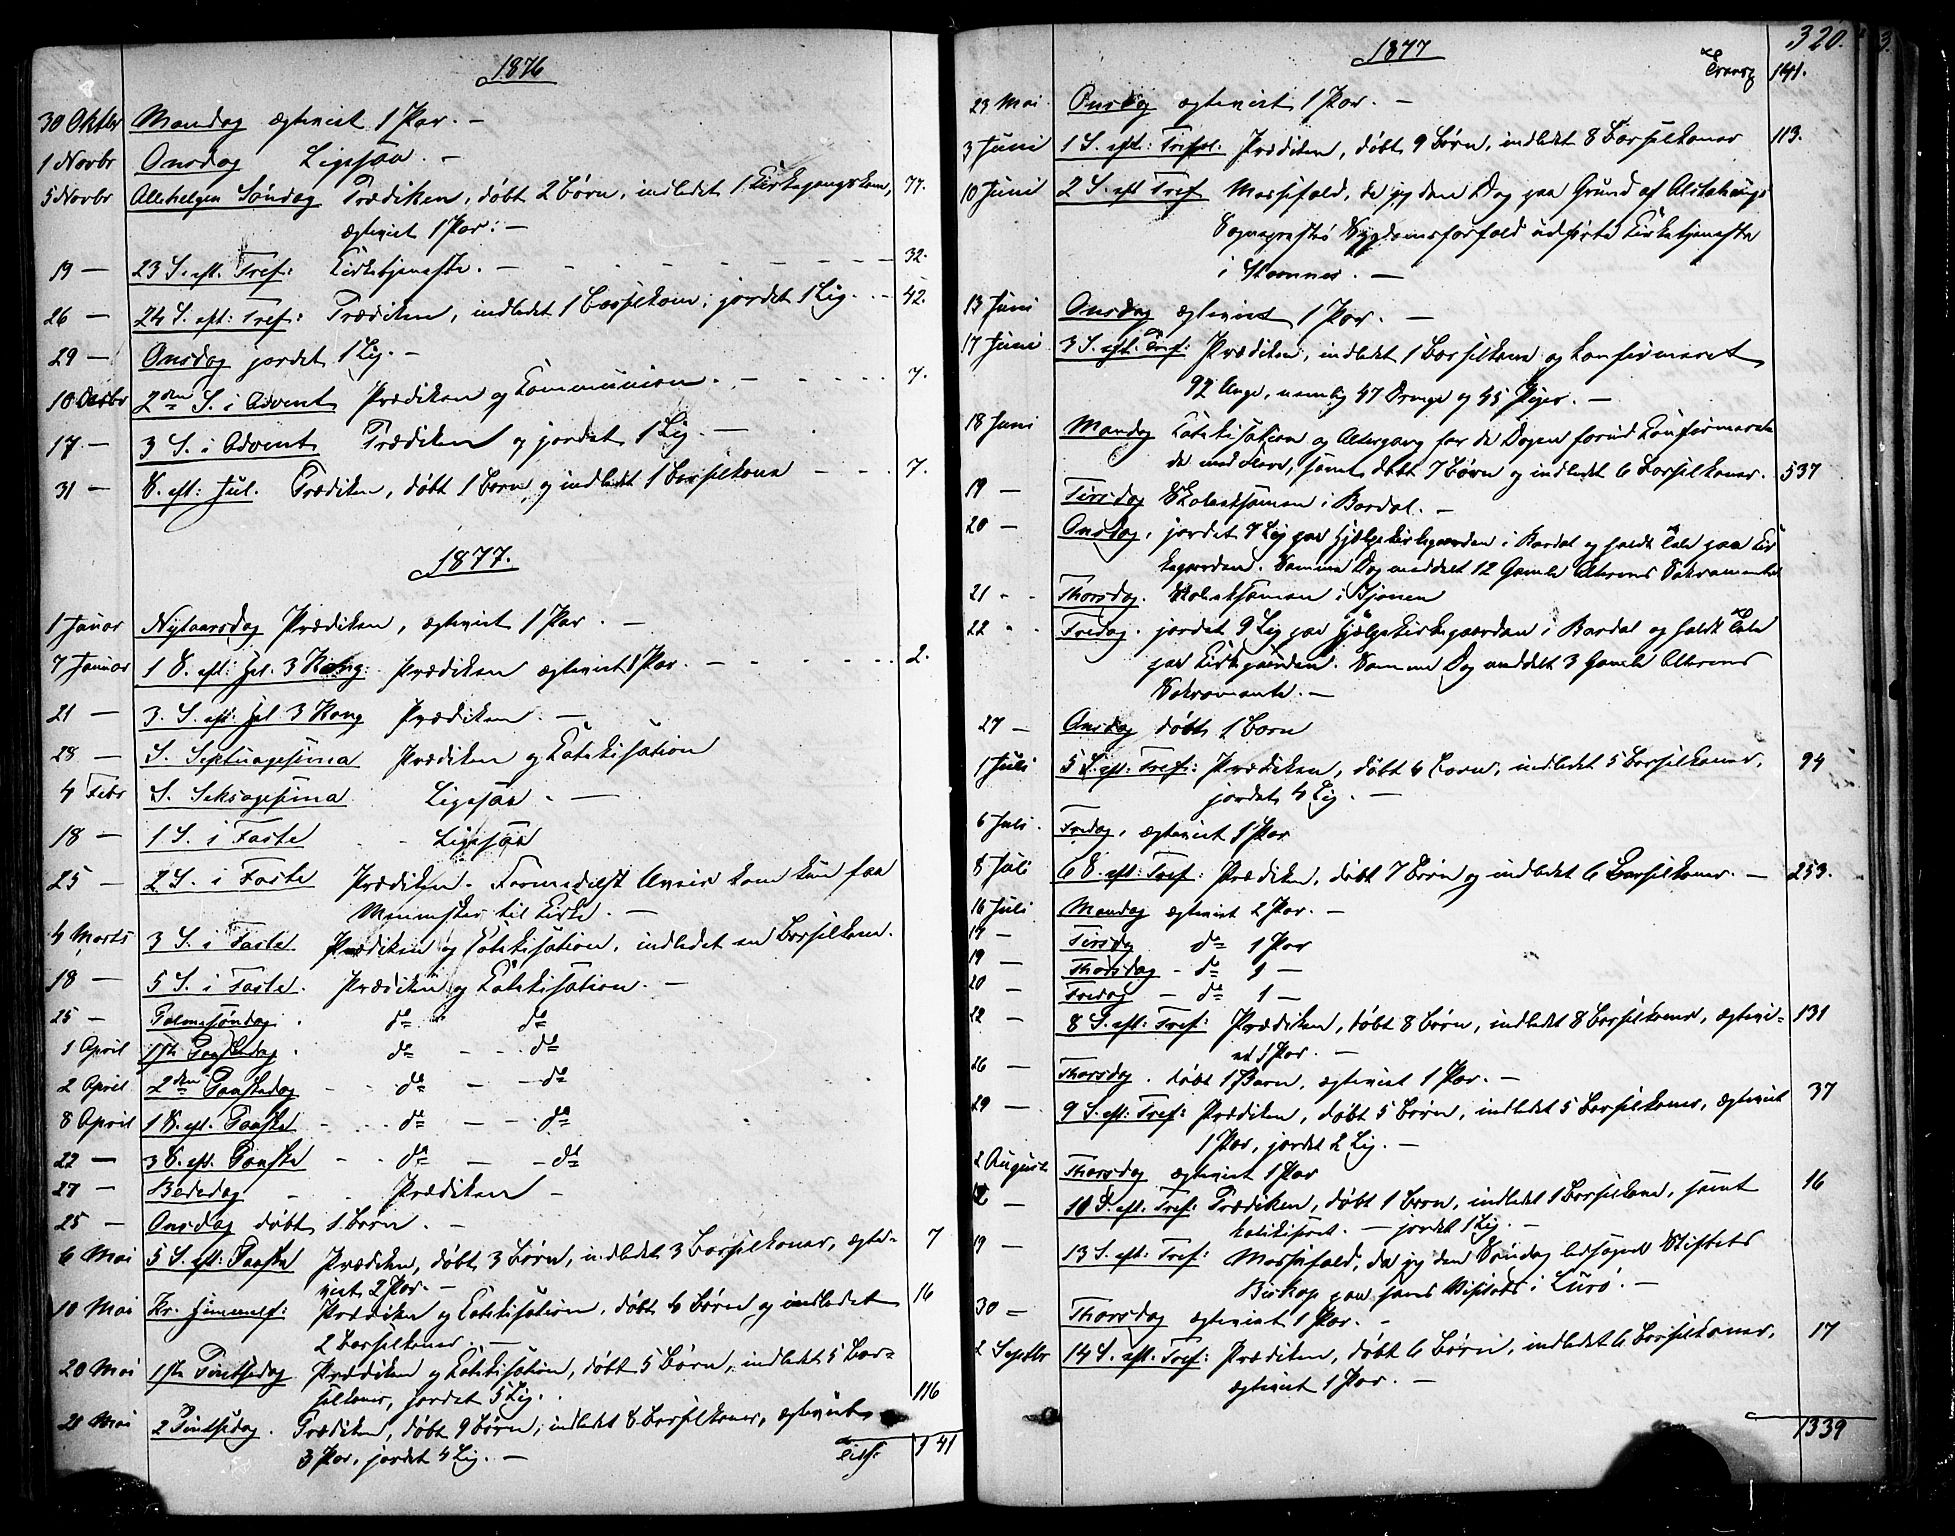 1876
30 Oktbr Mandag ægteviet 1 Par. –
1 Novbr Onsdag Ligesaa. –
5 Novbr Allehelgen Søndag Prædiken, døbt 2 Børn, indledet 1 Kirkegangskone, 77.
ægteviet 1 Par: –
19 – 23 S. eft. Tref: Kirketjeneste. – 32.
26 – 24 S. eft: Tref: Prædiken, indledet 1 Barselkone; jordet 1 Lig. 42.
29 – Onsdag jordet 1 Lig. –
10 Decbr 2den S. i Advent Prædiken og Communion. 7.
17 – 3 S. i Advent Prædiken og jordet 1 Lig. –
31 – S. eft: Jul. Prædiken, døbt 1 Barn og indledet 1 Barselkone 7.
1877.
1 Januar Nytaarsdag Prædiken, ægteviet 1 Par. –
7 Januar 1 S. eft: Hel. 3 Kong: Prædiken ægteviet 1 Par. 2.
21 – 3. S. eft: Hel. 3 Kong Prædiken. –
28 – S. Septuagesima Prædiken og Katekisation
4 Febr S. Seksagesima Ligesaa. –
18 – 1 S. i Faste Ligesaa
25 – 2 S. i Faste Prædiken. Formedelst Uveir kom kun faa
Mennesker til Kirke. –
4 Marts 3 S. i Faste Prædiken og Katekisation, indledet en Barselkone.
18 – 5 S. i Faste. Prædiken og Katekisation. –
25 – Palmesøndag. do do
1 April 1ste Paaskedag. do – do
2 April 2den Paaskedag do – do
8 April 1 S. eft. Paaske do – do
22 – 3 S. eft. Paaske do – do
27 – Bededag Prædiken –
25 – Onsdag døbt 1 Barn. –
6 Mai 5 S. eft: Paaske Prædiken, døbt 3 Børn, indledet 3 Barselkoner, ægte- 7
viet 2 Par. –
10 Mai Kr. Himmelf: Prædiken og Katekisation, døbt 4 Børn og indledet 16
2 Barselkoner. –
20 Mai 1ste Pintsedag Prædiken og Katekisation, døbt 5 Børn, indledet 5 Bar-
selkoner, jordet 5 Lig. 116
21 Mai 2 Pintsedag. Prædiken, døbt 9 Børn, indledet 8 Barselkoner, ægteviet
3 Par, jordet 4 Lig. – 141
1877 320.
Transp 141.
23 Mai Onsdag ægteviet 1 Par. –
3 Juni 1 S. eft: Tref. Prædiken, døbt 9 Børn, indledet 8 Barselkoner 113.
10 Juni 2 S. eft Tref Messefald, da jeg denne Dag paa Grund af Alstahaugs
Sognepræsts Sygdomsforfald udførte Kirketjeneste
i Stamnes. –
13 Juni Onsdag ægteviet 1 Par. –
17 Juni 3 S. eft. Tref: Prædiken, indledet 1 Barselkone og konfirmeret
92 Unge, nemlig 47 Drenge og 45 Piger. –
18 Juni Mandag Katekisation og Altergang for de Dagen forud Konfirmerede
de med Flere, samt døbt 7 Børn og indledet 6 Barselkoner. 537
19 – Tirsdag Skoleeksamen i Bardal. –
20 – Onsdag, jordet 7 Lig paa Hjælpekirkegaarden i Bardal og holdt Tale paa Kir
kegaarden. Samme Dag meddelt 12 Gamle Alterens Sakramente
21 Thorsdag. Skoleeksamen i Hjonen
22 Fredag. jordet 9 Lig paa Hjælpekirkegaarden i Bardal og holdt Tale
paa Kirkegaarden. Samme Dag meddelt 3 Gamle Alterens
Sakramente. –
27 – Onsdag døbt 1 Barn
1 Juli 5 S. eft: Tref: Prædiken, døbt 6 Børn, indledet 5 Barselkoner, 94
jordet 4 Lig. –
6 Juli. Fredag, ægteviet 1 Par
8 Juli 6 S. eft: Tref: Prædiken, døbt 7 Børn og indledet 6 Barselkoner. – 253.
16 Juli Mandag ægteviet 2 Par. –
17 – Tirsdag do 1 Par
19 – Thorsdag – do 1 –
20 – Fredag – do 1 –
22 – 8 S. eft: Tref: Prædiken, døbt 8 Børn, indledet 8 Barselkoner, ægtevi- 131
et 1 Par. –
26 – Thorsdag. døbt 1 Barn, ægteviet 1 Par. –
29 – 9 S. eft: Tref: Prædiken, døbt 5 Børn, indledet 5 Barselkoner, ægteviet 37
1 Par, jordet 2 Lig. –
2 August Thorsdag ægteviet 1 Par
– 11 S. eft. Tref: Prædiken, døbt 1 Barn, indledet 1 Barselkone, samt 16
katekiseret. – jordet 1 Lig. –
19 – 13 S. eft: Tref: Messefald, da jeg den Søndag ledsagede Stiftets
Biskop paa hans Visitats i Lurø. –
30 – Thorsdag ægteviet 1 Par. –
2 Septbr 14 S. eft. Tref: Prædiken, døbt 6 Børn, indledet 6 Barselkoner, 17
ægteviet 1 Par. –
1339